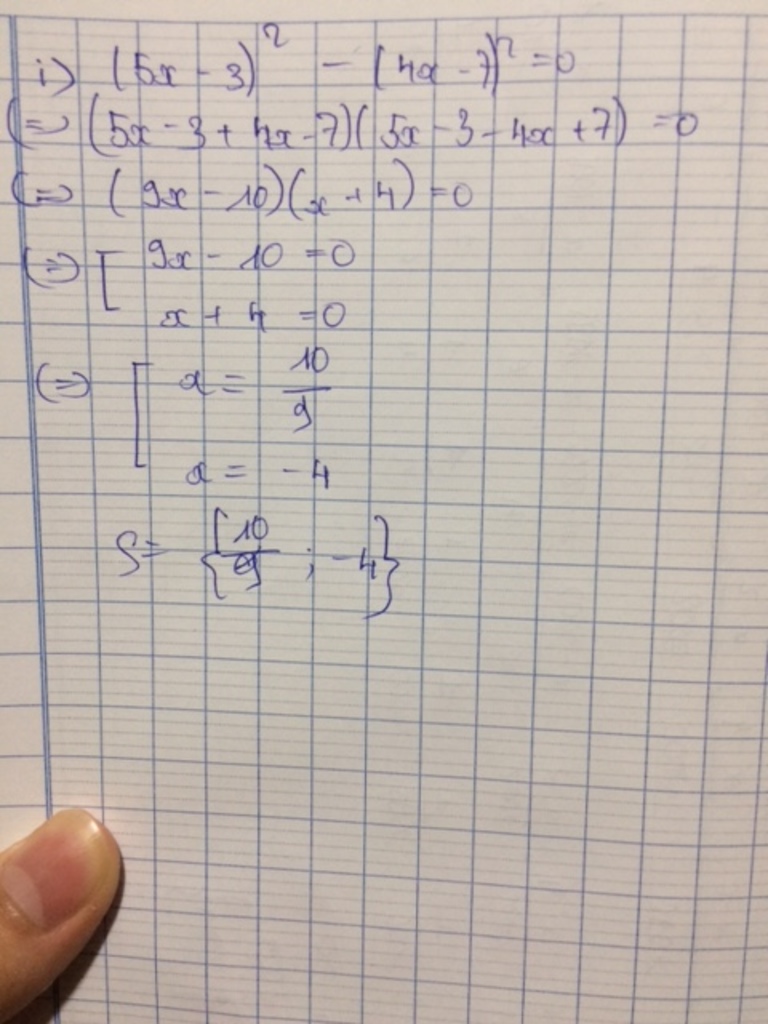 i) (5x - 3)² - (4x - 7)² = 0
(=) (5x - 3 + 4x - 7)(5x - 3 - 4x + 7) = 0
(=) (9x - 10)(x + 4) = 0
(=) [ 9x - 10 = 0
x + 4 = 0
(=) [ x = 10/9
x = -4
S = {10/9 ; -4}